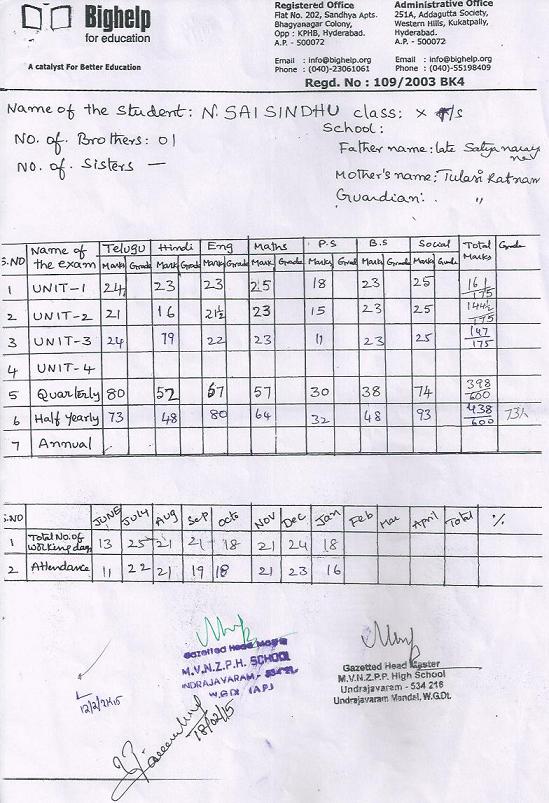 Bighelp
for education
A catalyst For Better Education
Registered Office
Flat No. 202, Sandhya Apts.
Bhagyanagar Colony,
Opp : KPHB, Hyderabad.
A.P. - 500072
Email : info@bighelp.org
Phone : (040)-23061061
Administrative Office
251A, Addagutta Society,
Western Hills, Kukatpally,
Hyderabad.
A.P. - 500072
Email : info@bighelp.org
Phone : (040)-55198409
Regd. No : 109/2003 BK4
Name of the Student: N. SAI SINDHU class: X
School:
NO. of. Brothers: 01
Father name: late Satyanaray
NO. of. Sisters —
Mother's name: Tulasi Ratnam
Guardian: . "
S.NO Name of the exam Telugu Hindi Eng Maths P.S B.S Social Total Marks Grade
Mark Grade Mark Grade Mark Grade Mark Grade Marks Grad Mark Grade Mark Grade
1 UNIT-1 24 23 23 25 18 23 25 161/175
2 UNIT-2 21 16 21½ 23 15 23 25 144½/175
3 UNIT-3 24 19 22 23 11 23 25 147/175
4 UNIT-4
5 Quarterly 80 52 67 57 30 38 74 398/600
6 Half Yearly 73 48 80 64 32 48 93 438/600 73%
7 Annual
S.NO JUNE JULY Aug Sep Octo Nov Dec Jan Feb Mar April Total %
1 Total No. of working days 13 25 21 21 18 21 24 18
2 Attendance 11 22 21 19 18 21 23 16
Gazetted Head Master
M.V.N.Z.P.H. SCHOOL
INDRAJAVARAM
W.G.Dt. (A.P.)
Gazetted Head Master
M.V.N.Z.P.P. High School
Undrajavaram - 534 216
Undrajavaram Mandal, W.G.Dt.
12/2/2K15
18/02/15